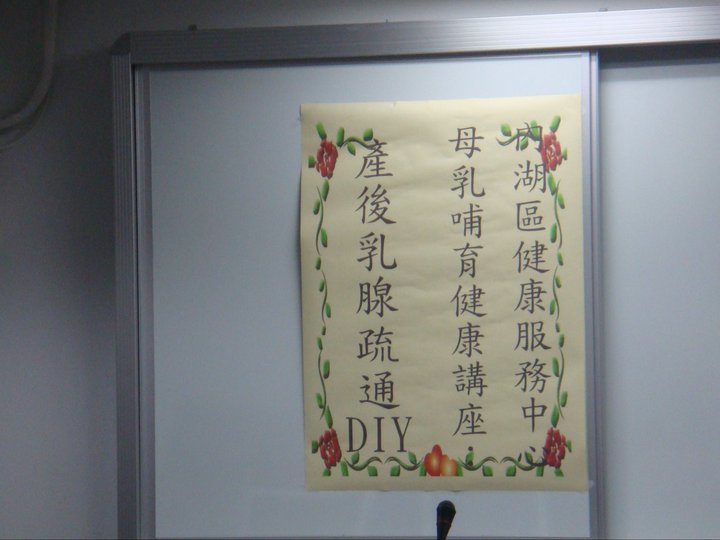 內湖區健康服務中心
母乳哺育健康講座：
產後乳腺疏通DIY